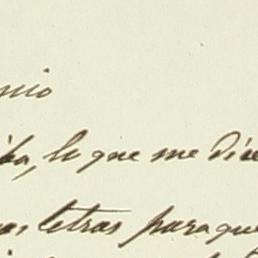 mio
iba, lo que me dice
as letras para que